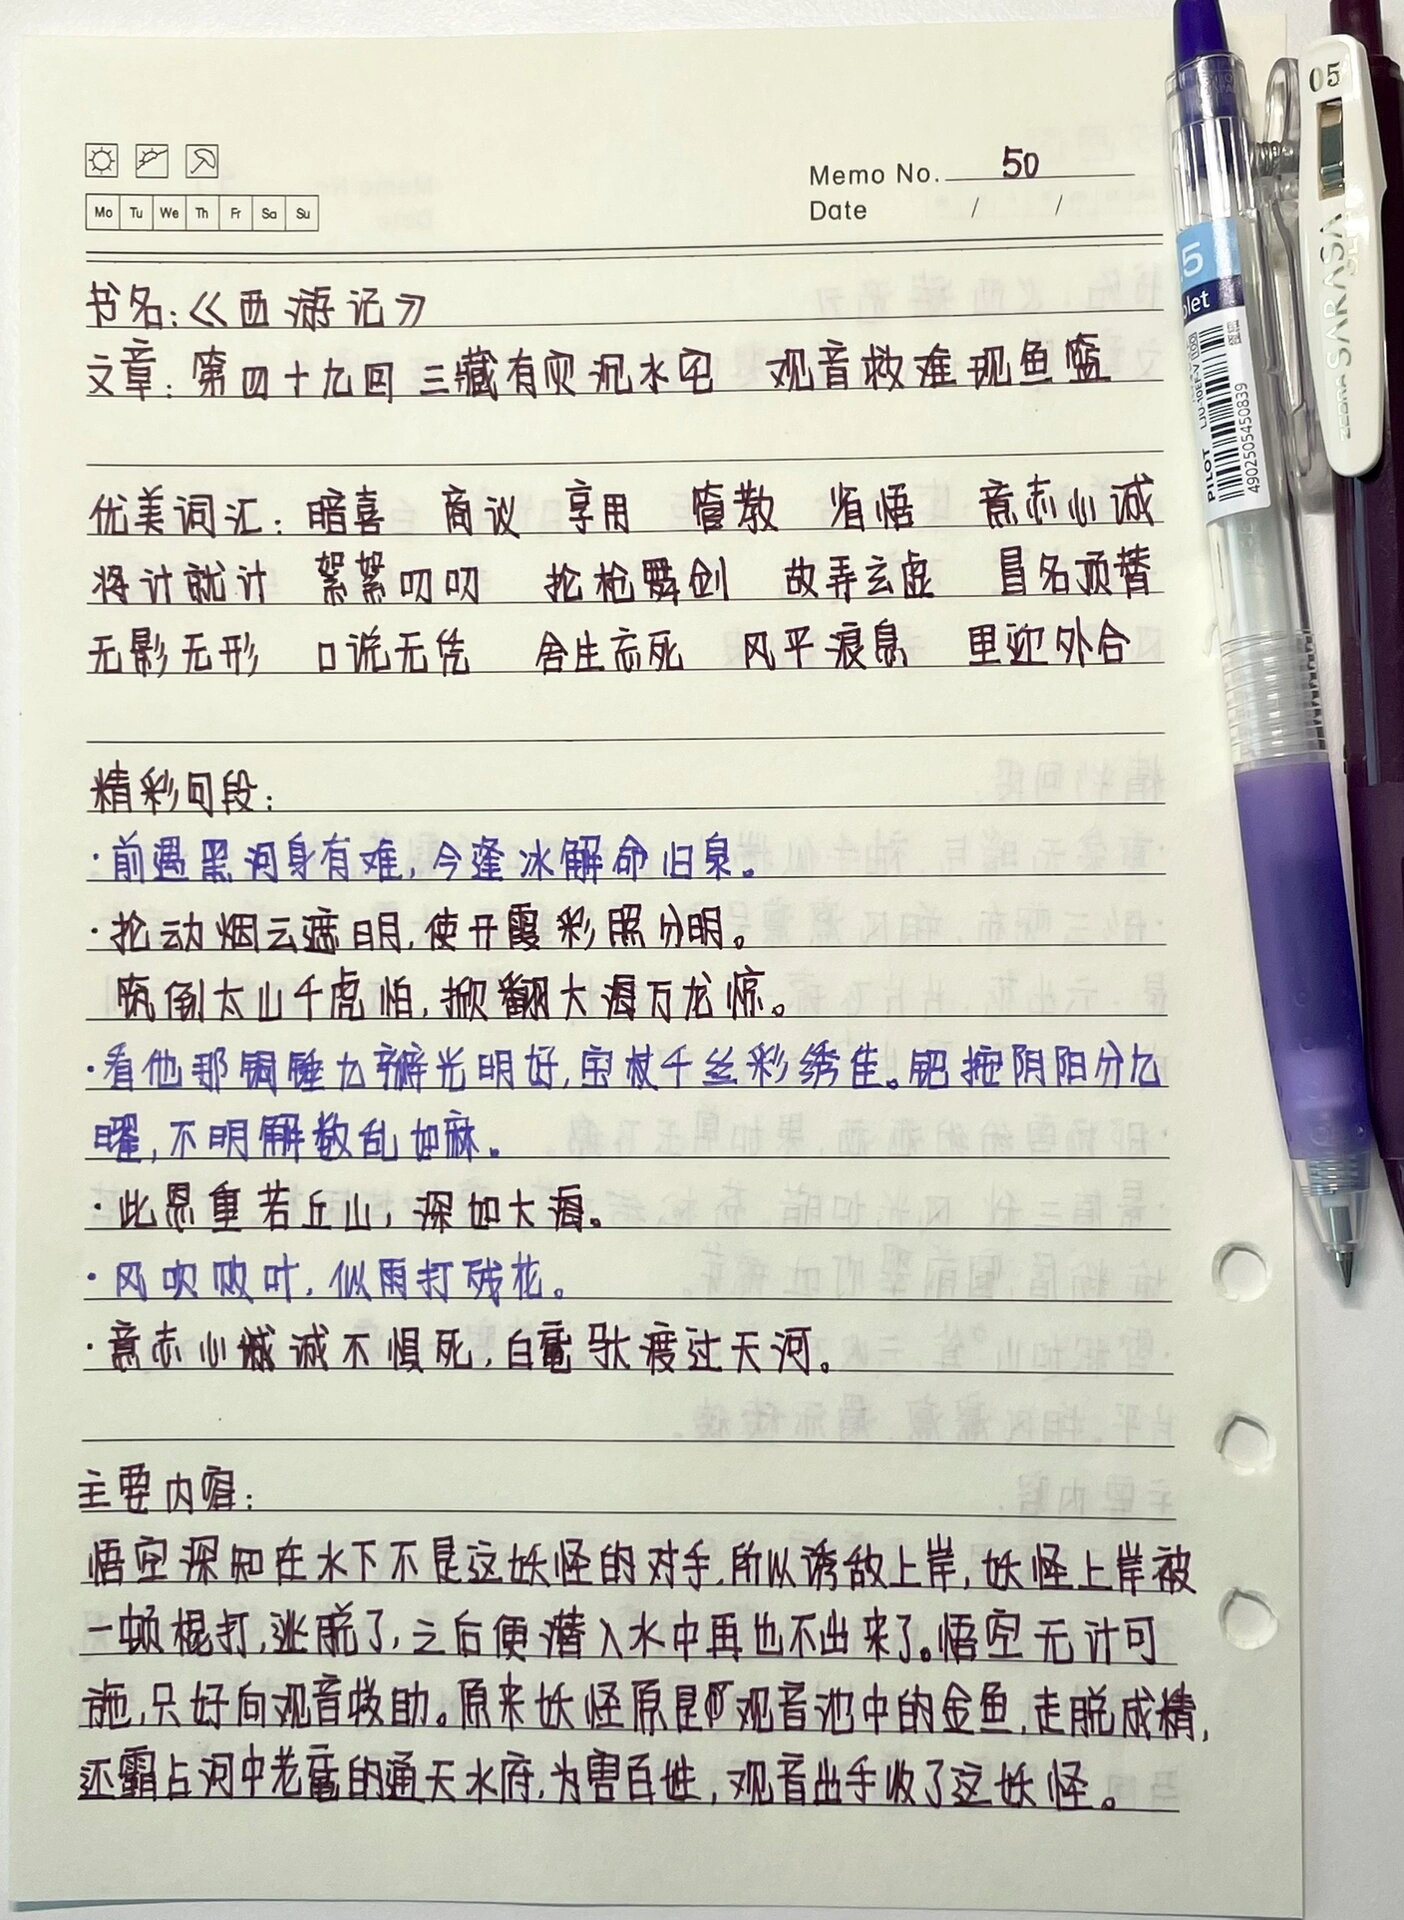 Memo No. 50
Mo Tu We Th Fr Sa Su
Date / /
书名:《西游记》
文章:第四十九回 三藏有灾沉水宅 观音救难现鱼篮
优美词汇:暗喜 商议 享用 惯教 省悟 意志心诚
将计就计 絮絮叨叨 抡枪舞剑 故弄玄虚 冒名顶替
无影无形 口说无凭 舍生忘死 风平浪息 里迎外合
精彩句段:
·前遇黑河身有难,今逢冰解命归泉。
·抡动烟云遮日月,使开霞彩照分明。
筑倒太山千虎怕,掀翻大海万龙惊。
·看他那铜锤九瓣光明好,宝杖千丝彩绣佳。钯按阴阳分九
曜,不明解数乱如麻。
·此恩重若丘山,深如大海。
·风吹败叶,似雨打残花。
·意志心诚不惧死,白鼋驮渡过天河。
主要内容:
悟空深知在水下不是这妖怪的对手,所以诱敌上岸,妖怪上岸被
一顿棍打,逃脱了,之后便潜入水中再也不出来了。悟空无计可
施,只好向观音救助。原来妖怪原是观音池中的金鱼,走脱成精,
还霸占河中老鼋的通天水府,为害百姓,观音出手收了这妖怪。
05
ZEBRA SARASA
.5
let
PILOT
LJU-10EF-V
4902505450839